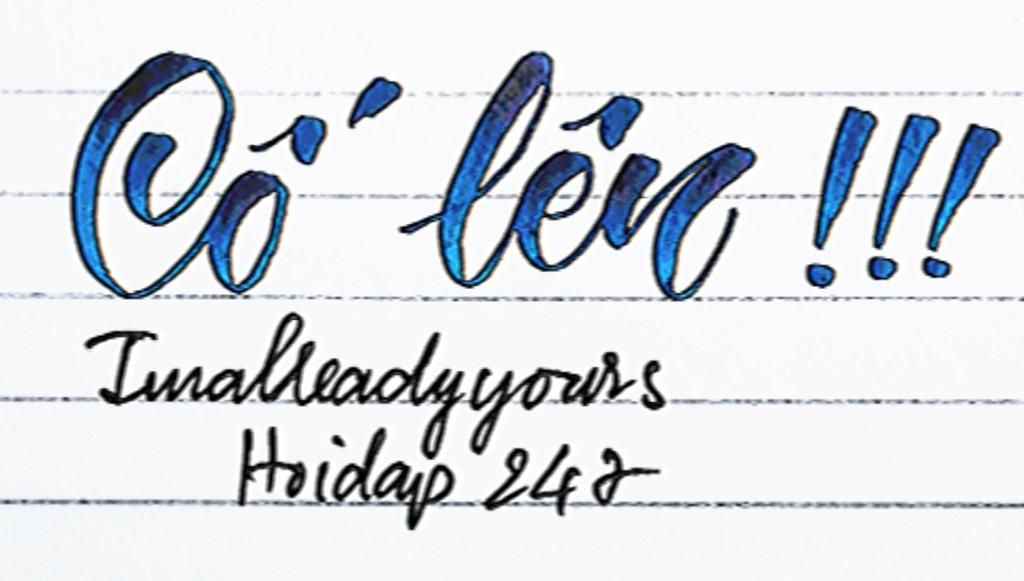 Cố lên !!!
Imalreadyyours
Hoidap 247